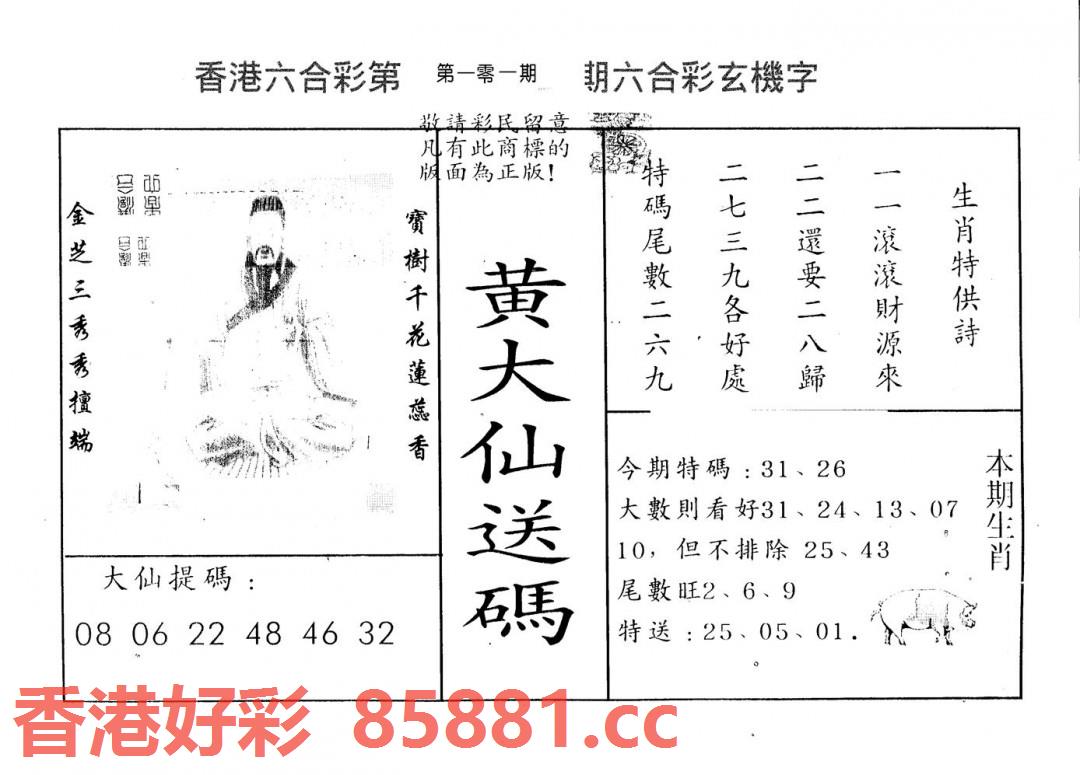 香港六合彩第 第一零一期 期六合彩玄機字
敬請彩民留意
凡有此商標的
版面為正版!
金芝三秀秀擅端
寶樹千花蓮蕊香
大仙提碼：
08 06 22 48 46 32
黃大仙送碼
生肖特供詩
一一滾滾財源來
二二還要二八歸
二七三九各好處
特碼尾數二六九
今期特碼：31、26
大數則看好31、24、13、07
10，但不排除 25、43
尾數旺2、6、9
特送：25、05、01．
本期生肖
香港好彩 85881.cc